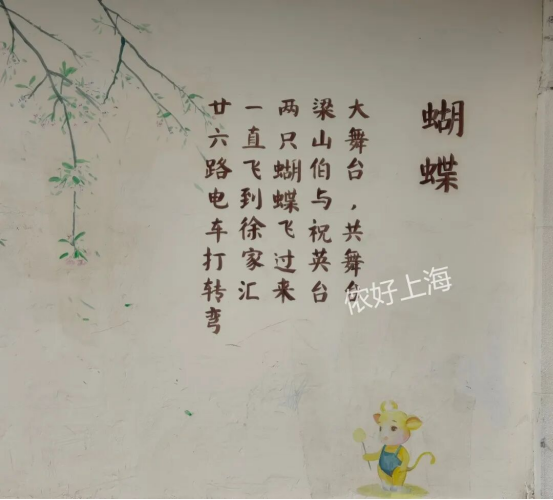 蝴蝶
大舞台，共舞台
梁山伯与祝英台
两只蝴蝶飞过来
一直飞到徐家汇
廿六路电车打转弯
侬好上海